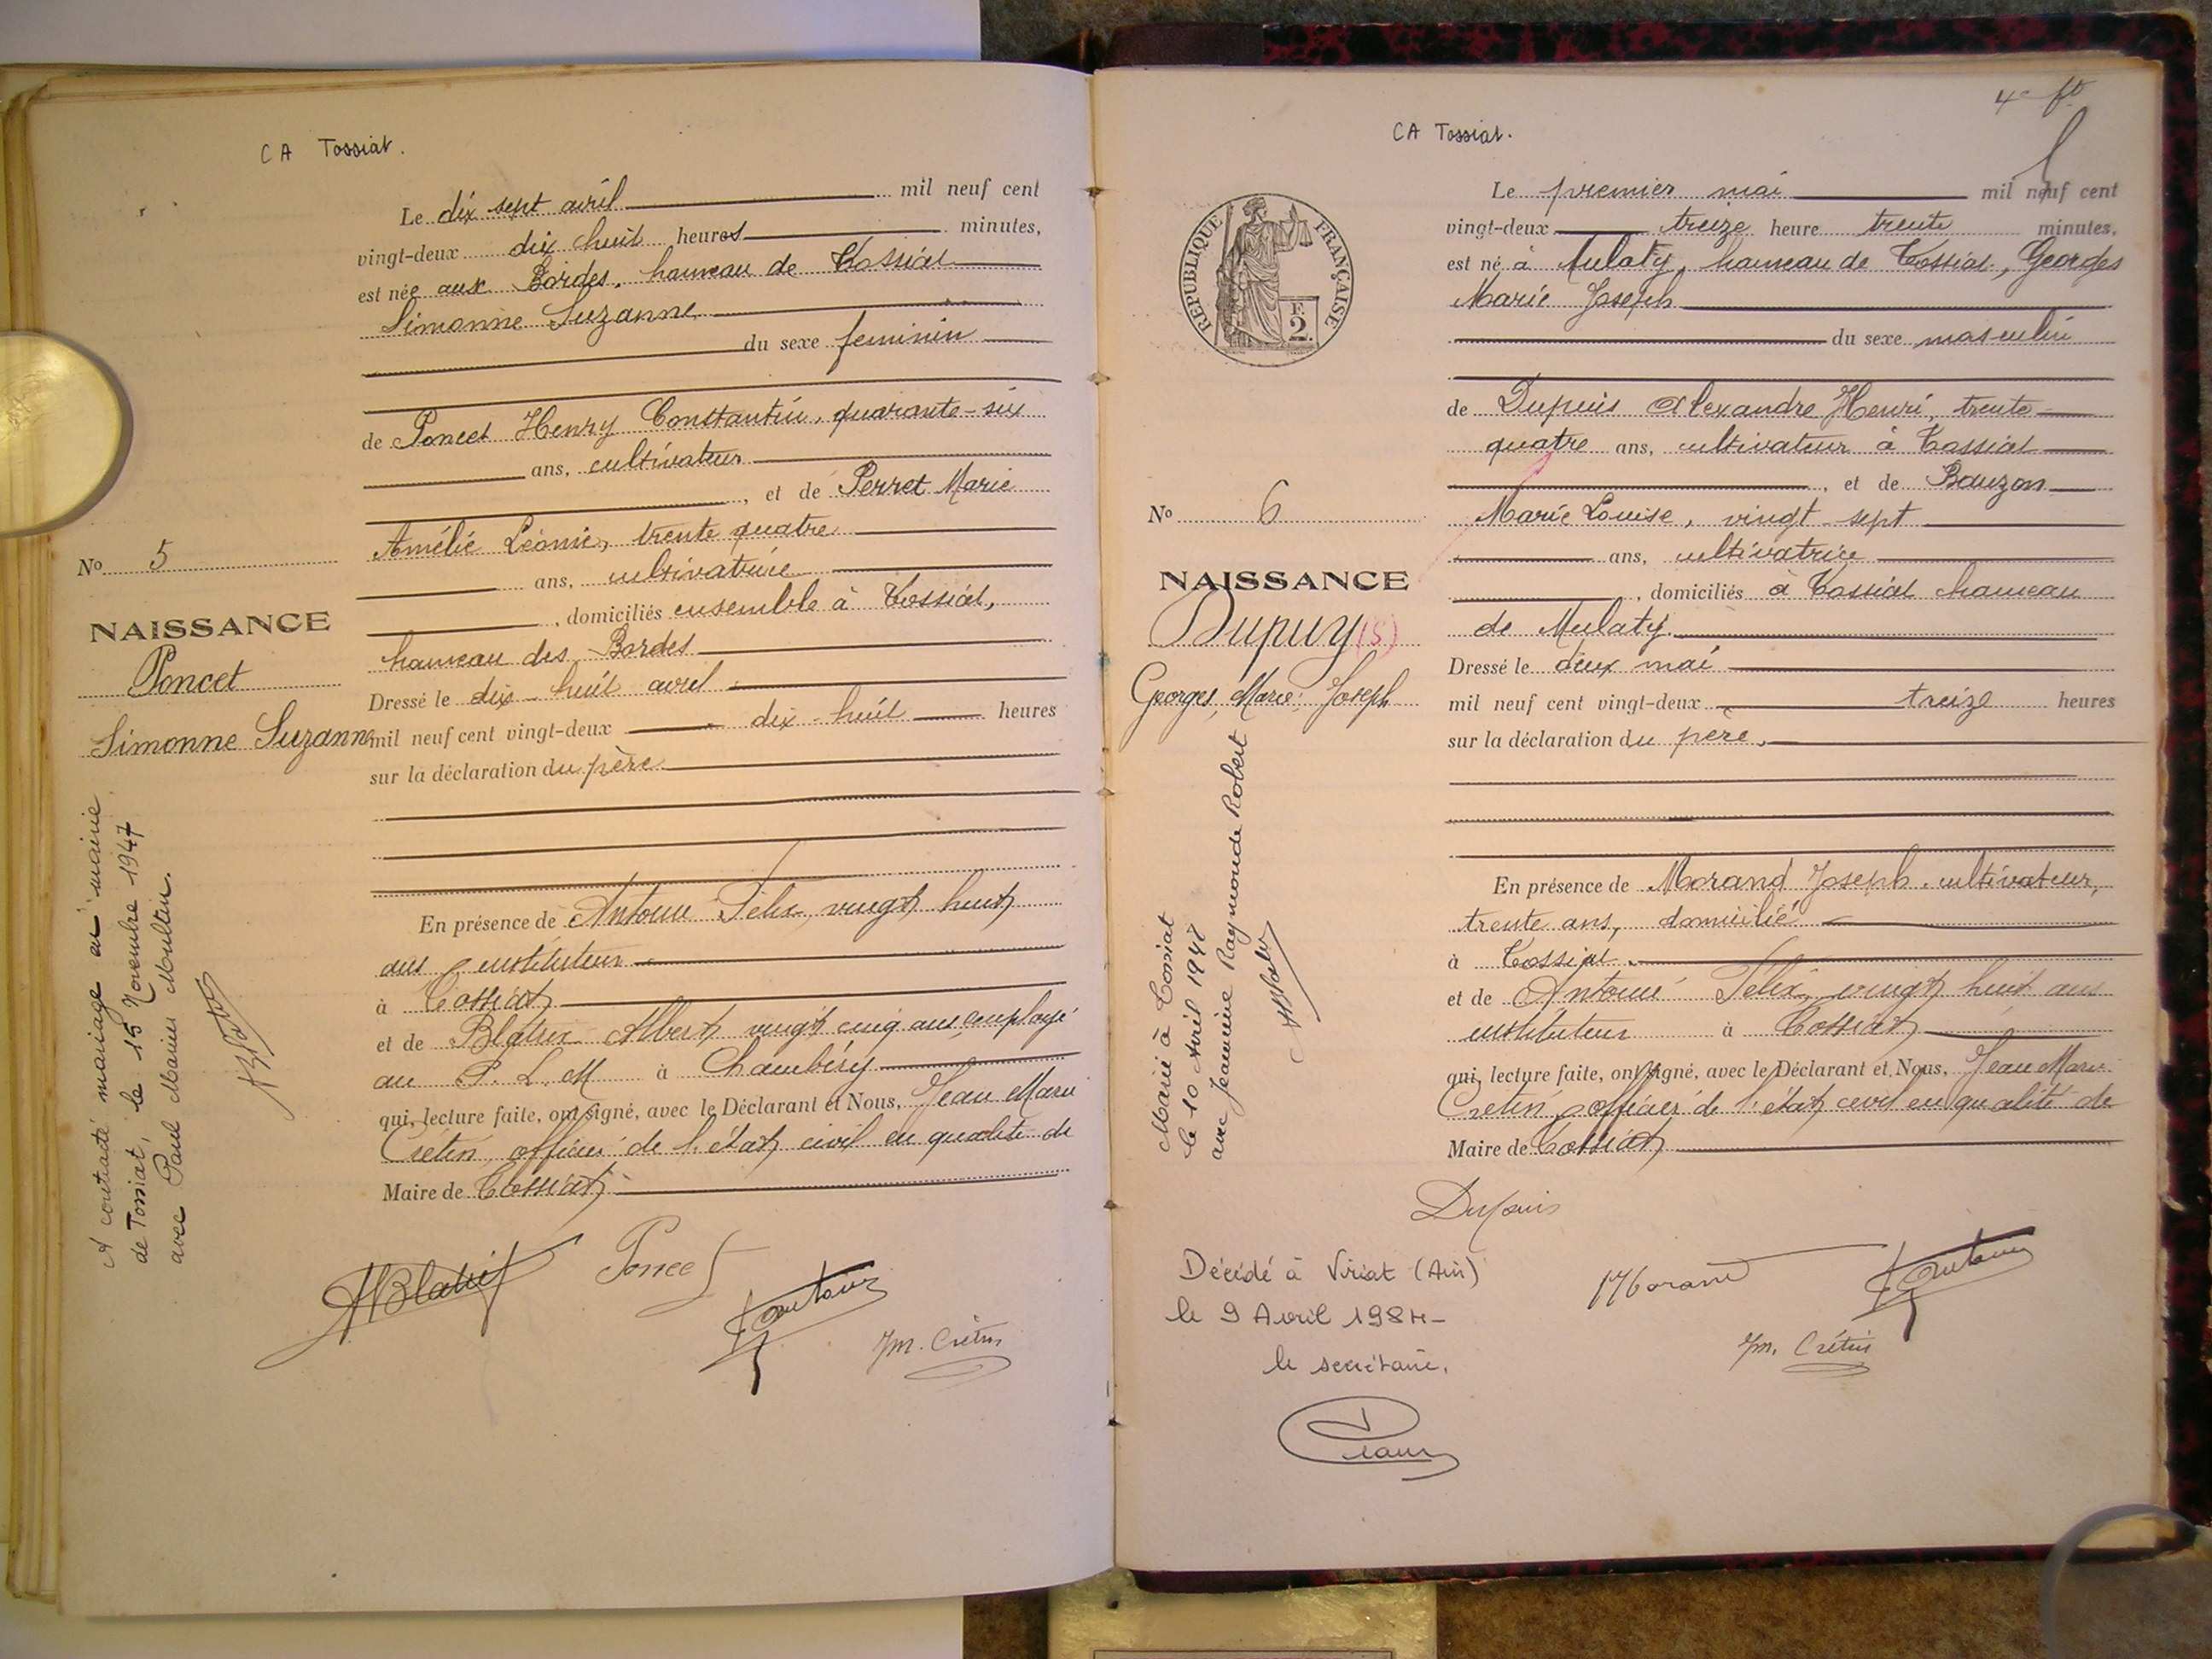 CA Tossiat.
Le dix sept avril mil neuf cent
vingt-deux dix huit heures minutes,
est née aux Bordes, hameau de Tossiat
Simonne Suzanne
du sexe feminin
de Poncet Henry Constantin, quarante-six
ans, cultivateur
, et de Perret Marie
Amélie Léonie, trente quatre
ans, cultivatrice
, domiciliés ensemble à Tossiat,
hameau des Bordes
Dressé le dix-huit avril
mil neuf cent vingt-deux dix-huit heures
sur la déclaration du père
En présence de Antoine Félix, vingt huit
ans instituteur
à Tossiat
et de Blatrix Albert vingt cinq ans, employé
au P. L. M à Chambéry
qui, lecture faite, ont signé, avec le Déclarant et Nous, Jean Marie
Crétin, officier de l'état civil en qualité de
Maire de Tossiat
No 5
NAISSANCE
Poncet
Simonne Suzanne
A contracté mariage en mairie
de Tossiat, le 15 Novembre 1947
avec Paul Marius Moultin.
Poncet
Jm. Crétin
4e ft
CA Tossiat.
REPUBLIQUE FRANÇAISE
F.
2.
Le premier mai mil neuf cent
vingt-deux treize heure trente minutes,
est né à Mulaty, hameau de Tossiat, Georges
Marie Joseph
du sexe masculin
de Dupuis Alexandre Henri, trente
quatre ans, cultivateur à Tossiat
, et de Bauzon
Marie Louise, vingt-sept
ans, cultivatrice
, domiciliés à Tossiat hameau
de Mulaty.
Dressé le deux mai
mil neuf cent vingt-deux treize heures
sur la déclaration du père,
En présence de Morand Joseph, cultivateur,
trente ans, domicilié
à Tossiat
et de Antoine Félix, vingt huit ans
instituteur à Tossiat
qui, lecture faite, ont signé, avec le Déclarant et Nous, Jean Marie
Crétin, officier de l'état civil en qualité de
Maire de Tossiat
No 6
NAISSANCE
Dupuy (S)
Georges, Marie, Joseph
Marié à Tossiat
le 10 Avril 1948
avec Jeannine Raymonde Robert
Dupuis
Décédé à Viriat (Ain)
le 9 Avril 1984-
le secrétaire,
Morand
Jm. Crétin